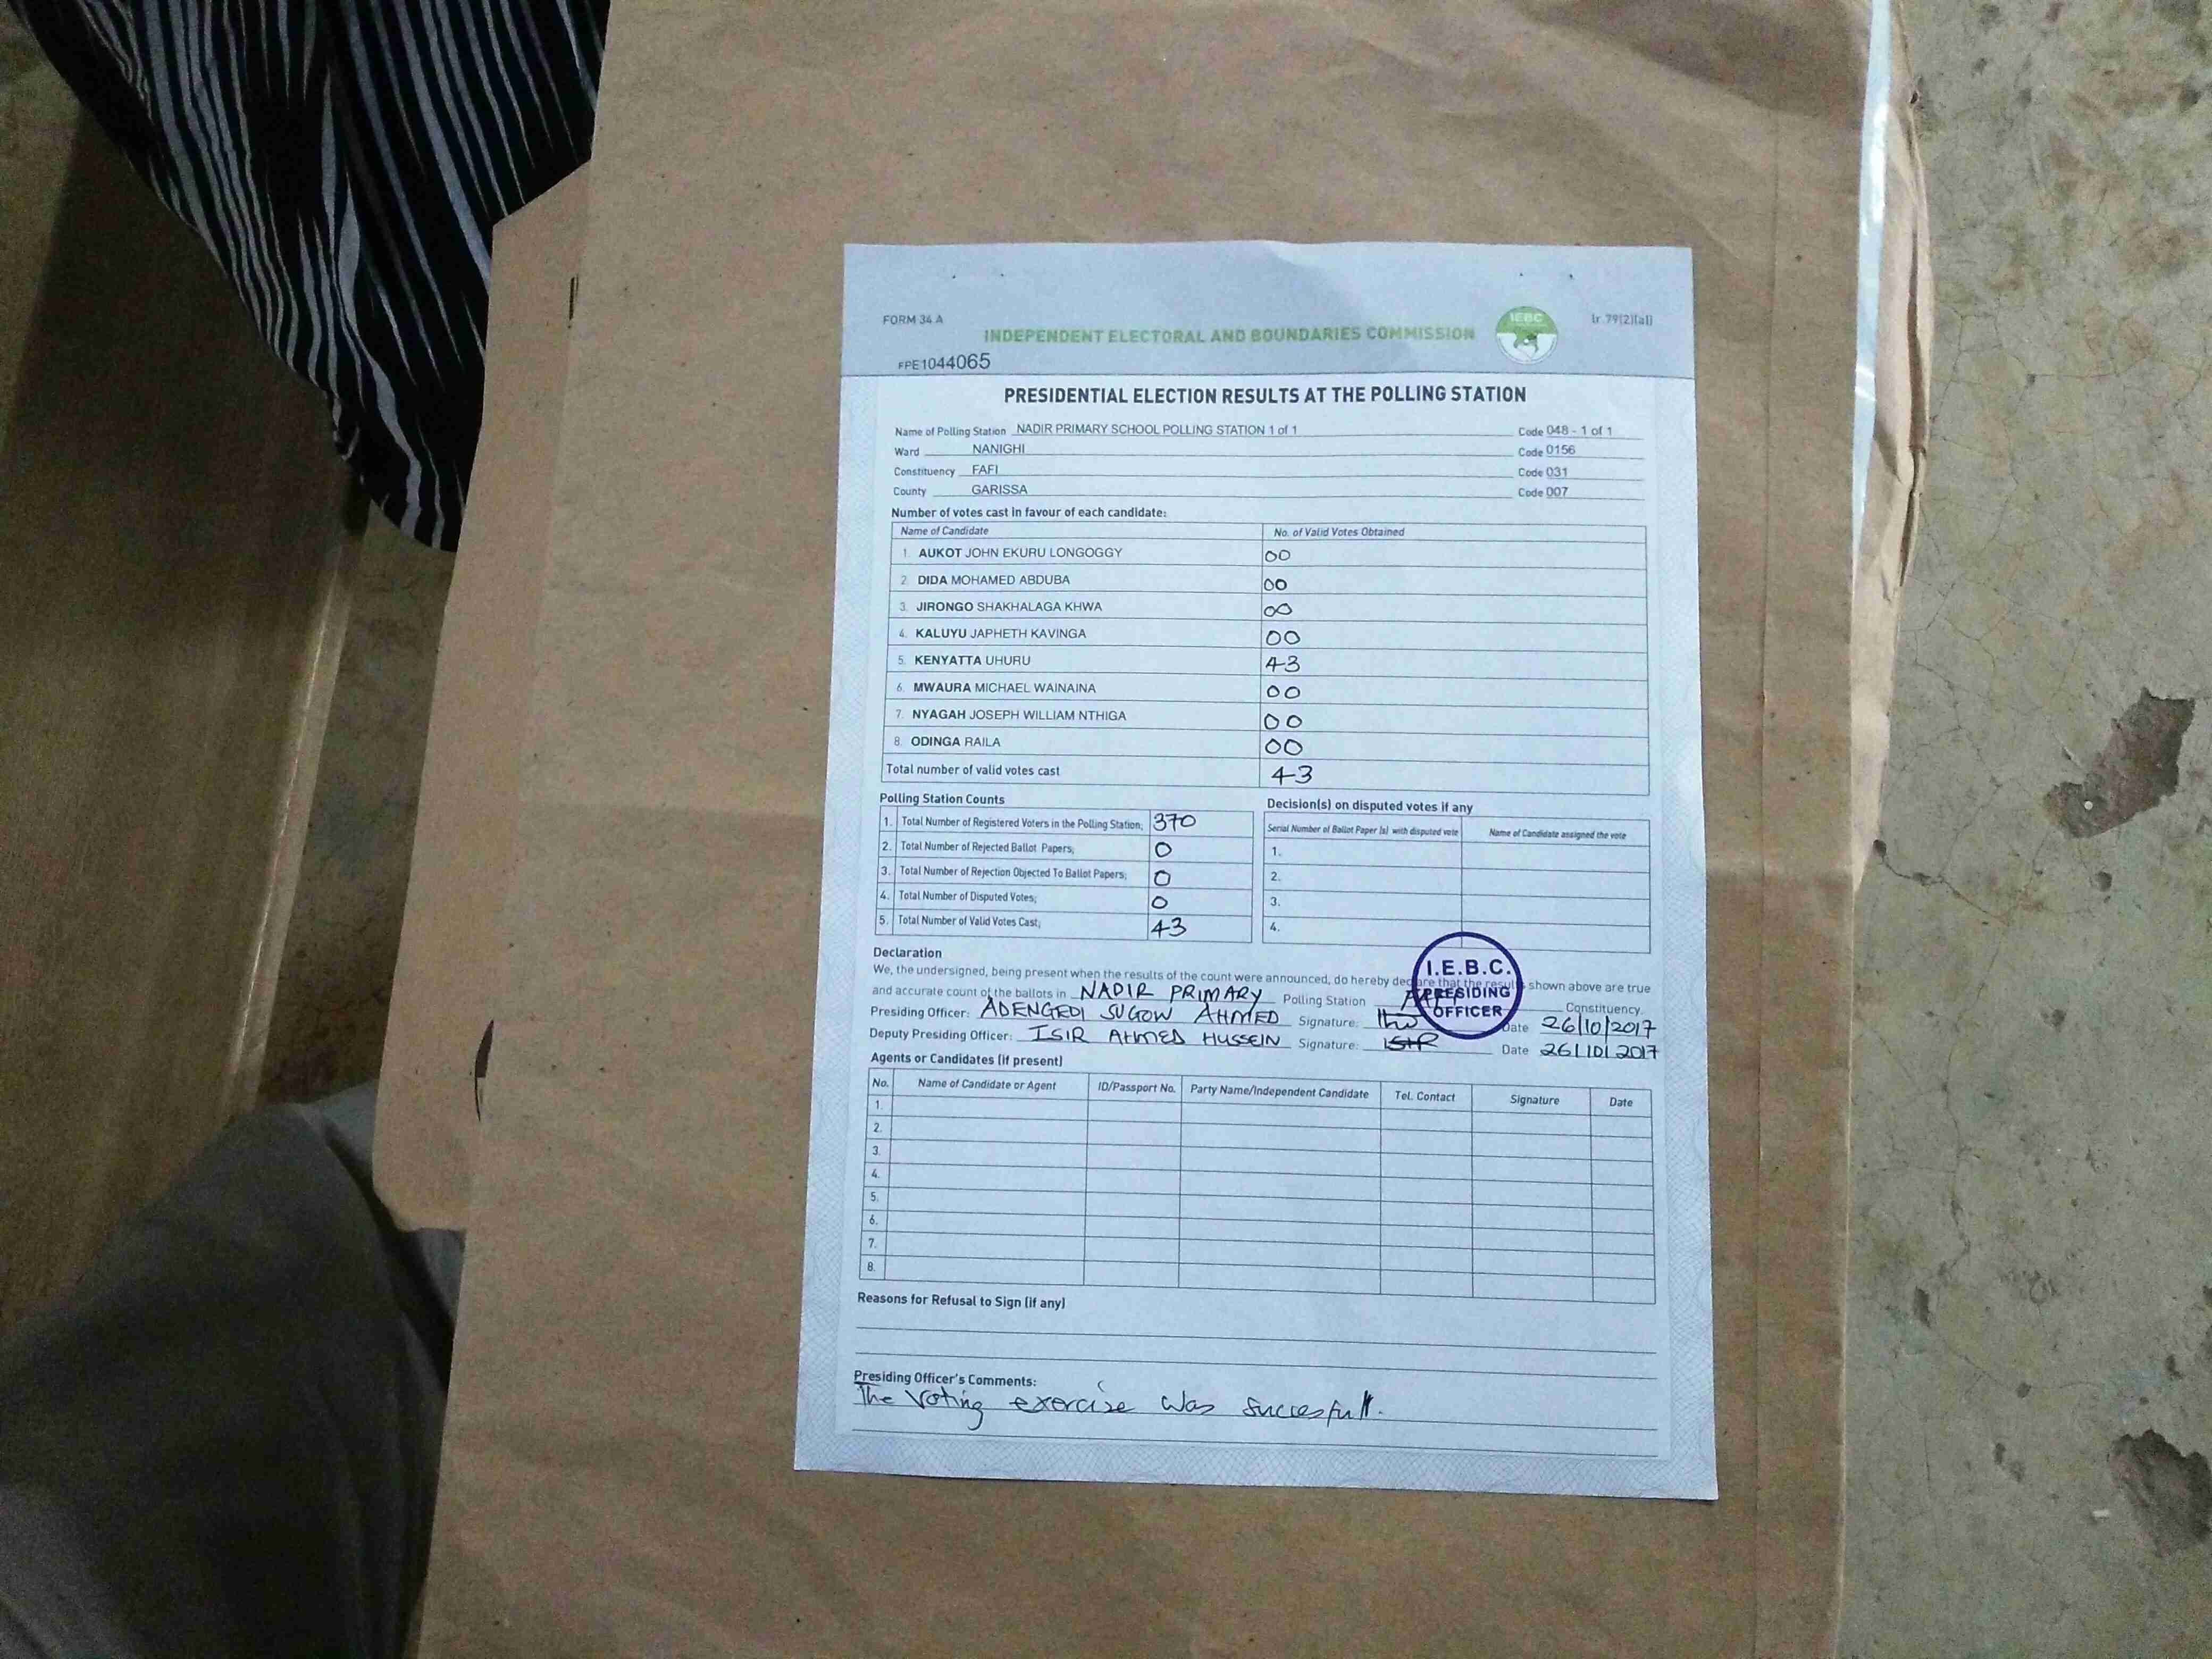 FORM 34 A
IEBC
(r.79(2)(a))
INDEPENDENT ELECTORAL AND BOUNDARIES COMMISSION
FPE1044065
PRESIDENTIAL ELECTION RESULTS AT THE POLLING STATION
Name of Polling Station NADIR PRIMARY SCHOOL POLLING STATION 1 of 1 Code 048 - 1 of 1
Ward NANIGHI Code 0156
Constituency FAFI Code 031
County GARISSA Code 007
Number of votes cast in favour of each candidate:
Name of Candidate No. of Valid Votes Obtained
1. AUKOT JOHN EKURU LONGOGGY 00
2. DIDA MOHAMED ABDUBA 00
3. JIRONGO SHAKHALAGA KHWA 00
4. KALUYU JAPHETH KAVINGA 00
5. KENYATTA UHURU 43
6. MWAURA MICHAEL WAINAINA 00
7. NYAGAH JOSEPH WILLIAM NTHIGA 00
8. ODINGA RAILA 00
Total number of valid votes cast 43
Polling Station Counts
1. Total Number of Registered Voters in the Polling Station; 370
2. Total Number of Rejected Ballot Papers; 0
3. Total Number of Rejection Objected To Ballot Papers; 0
4. Total Number of Disputed Votes; 0
5. Total Number of Valid Votes Cast; 43
Decision(s) on disputed votes if any
Serial Number of Ballot Paper (s) with disputed vote Name of Candidate assigned the vote
1.
2.
3.
4.
Declaration
We, the undersigned, being present when the results of the count were announced, do hereby declare that the results shown above are true
and accurate count of the ballots in NADIR PRIMARY Polling Station Constituency.
Presiding Officer: ADENGEDI SUGOW AHMED Signature: Date 26/10/2017
Deputy Presiding Officer: ISIR AHMED HUSSEIN Signature: ISIR Date 26/10/2017
I.E.B.C.
PRESIDING
OFFICER
Agents or Candidates (if present)
No. Name of Candidate or Agent ID/Passport No. Party Name/Independent Candidate Tel. Contact Signature Date
1.
2.
3.
4.
5.
6.
7.
8.
Reasons for Refusal to Sign (if any)
Presiding Officer's Comments:
The voting exercise was succesfull.